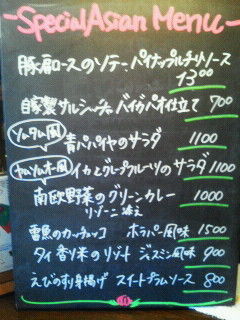 Special Asian Menu
豚肩ロースのソテー パイナップルチリソース
1300
自家製サルシッチャ バイガパオ仕立て 900
ソムタム風 青パパイヤのサラダ 1100
ヤムソムオー風 イカとグレープフルーツのサラダ 1100
南欧野菜のグリーンカレー 1000
リゾーニ添え
雷魚のカッチュッコ ホラパー風味 1500
タイ香り米のリゾット ジャスミン風味 900
えびのすり身揚げ スイートプラムソース 800